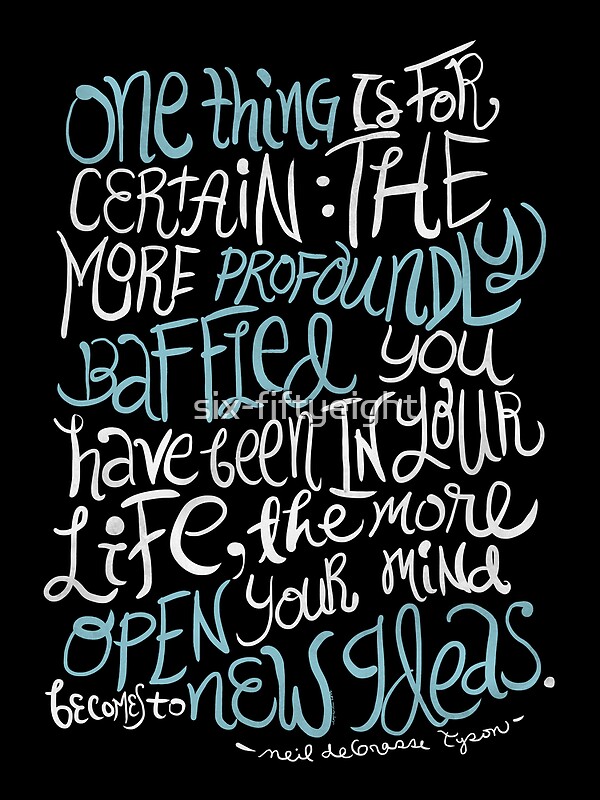 ONE thing IS FOR
CERTAIN: THE
MORE PROFOUNDLY
BAFFLED you
six-fiftyeight
have been IN YOUR
LIFE, the more
OPEN YOUR MIND
becomes to NEW IDEAS.
- neil deGrasse Tyson -